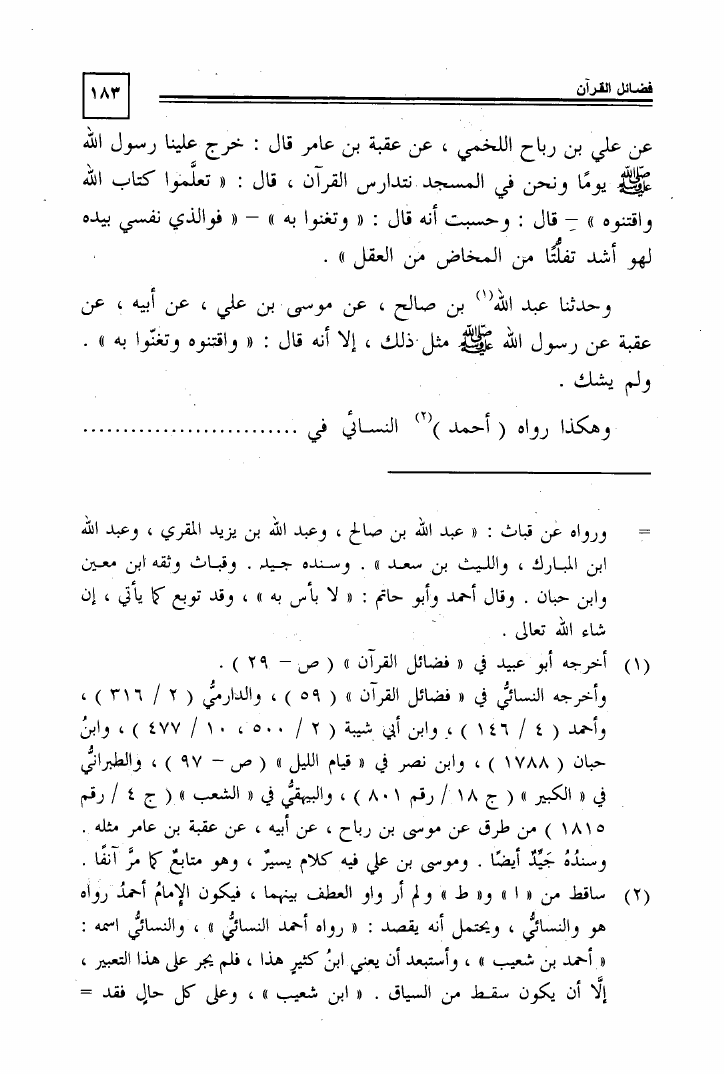 فضائل القرآن
١٨٣
عن علي بن رباح اللخمي ، عن عقبة بن عامر قال : خرج علينا رسول الله
ﷺ يومًا ونحن في المسجد نتدارس القرآن ، قال : « تعلَّموا كتاب الله
واقتنوه » – قال : وحسبت أنه قال : « وتغنوا به » – « فوالذي نفسي بيده
لهو أشد تفلُّتًا من المخاض من العقل » .
وحدثنا عبد الله(١) بن صالح ، عن موسى بن علي ، عن أبيه ، عن
عقبة عن رسول الله ﷺ مثل ذلك ، إلا أنه قال : « واقتنوه وتغنّوا به » .
ولم يشك .
وهكذا رواه ( أحمد )(٢) النسائي في ...........................
= ورواه عن قباث : « عبد الله بن صالح ، وعبد الله بن يزيد المقري ، وعبد الله
ابن المبارك ، والليث بن سعد » . وسنده جيد . وقباث وثقه ابن معين
وابن حبان . وقال أحمد وأبو حاتم : « لا بأس به » ، وقد توبع كما يأتي ، إن
شاء الله تعالى .
(١) أخرجه أبو عبيد في « فضائل القرآن » ( ص – ٢٩ ) .
وأخرجه النسائيُّ في « فضائل القرآن » ( ٥٩ ) ، والدارميُّ ( ٢ / ٣١٦ ) ،
وأحمد ( ٤ / ١٤٦ ) ، وابن أبي شيبة ( ٢ / ٥٠٠ ، ١٠ / ٤٧٧ ) ، وابنُ
حبان ( ١٧٨٨ ) ، وابن نصر في « قيام الليل » ( ص – ٩٧ ) ، والطبرانيُّ
في « الكبير » ( ج ١٨ / رقم ٨٠١ ) ، والبيهقيُّ في « الشعب » ( ج ٤ / رقم
١٨١٥ ) من طرق عن موسى بن رباح ، عن أبيه ، عن عقبة بن عامر مثله .
وسندُهُ جَيِّدٌ أيضًا . وموسى بن علي فيه كلام يسيرٌ ، وهو متابعٌ كما مرَّ آنفًا .
(٢) ساقط من « ا » و« ط » ولم أر واو العطف بينهما ، فيكون الإمامُ أحمدُ رواه
هو والنسائيُّ ، ويحتمل أنه يقصد : « رواه أحمد النسائيُّ » ، والنسائيُّ اسمه :
« أحمد بن شعيب » ، وأستبعد أن يعني ابنُ كثيرٍ هذا ، فلم يجر على هذا التعبير ،
إلَّا أن يكون سقط من السياق . « ابن شعيب » ، وعلى كل حالٍ فقد =